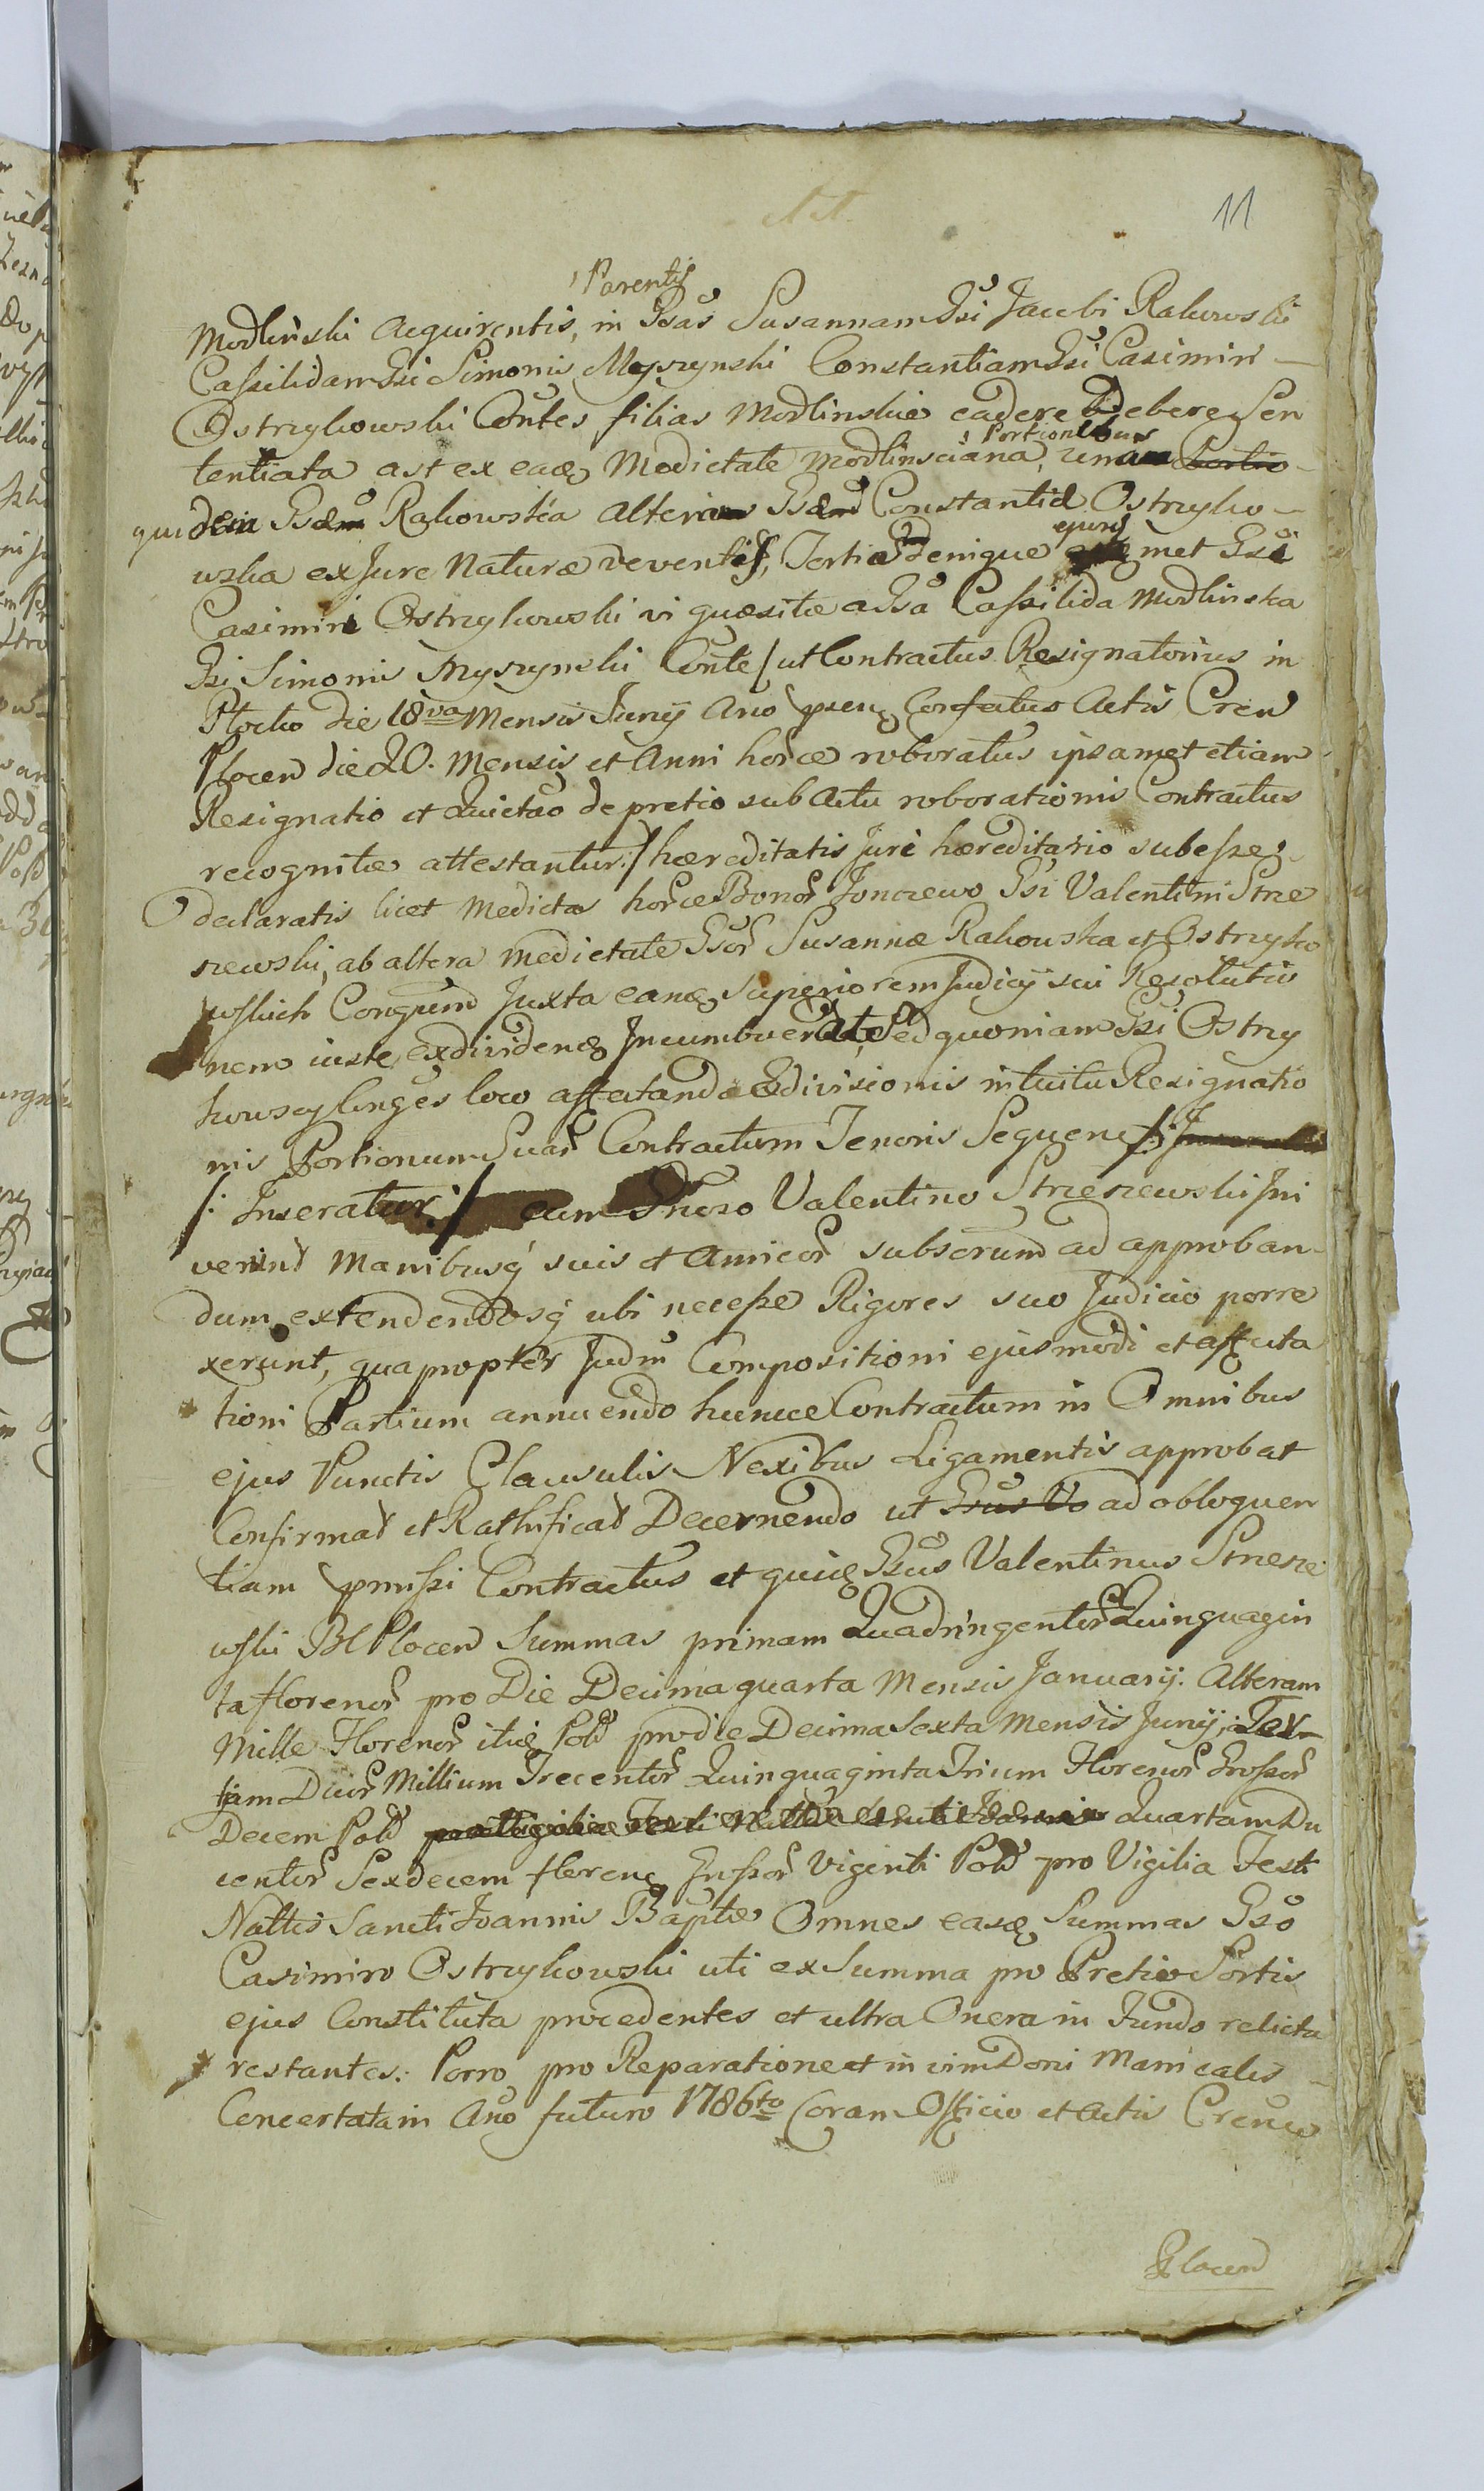 11
Parentis
Modlinski acquirentis, in Gsas Susannam Gsi Jacobi Rakowski
Cassilidam Gsi Simonis Myszynski Constantiam Gsi Casimiri
Ostrykowski Contes filias Modlinskie cadere debere Sen
Portionibus
tentiata ast ex eadq Medietate Modlinsciana, una Portio
quidem Gsae Rakowska altera Gsae Constantiae Ostryko
ejus
wska ex Jure Naturae deventis, Tertia denique met Gsi
Casimiri Ostrykowski vi quaesitae a Gsa Cassilida Modlinska
Gsi Simonis Myszynski Conte / ut Contractus Resignatorius in
Plocko die 18va Mensis Junij Ano psenq Confectus Actis Cren
Plocen die 20. Mensis et Anni horce roboratus ipsamet etiam
Resignatio et Quietao de pretio sub Actu roborationis Contractus
recognitae attestantur:/ haereditatis Jure haereditario subesse,
declaratis licet Medietas horce Bonor Jonczewo Gsi Valentini Strze
szewski, ab altera Medietate Gsor Susannae Rakowska et Ostryko
wskich Congum Juxta eanq superiorem Judicij sui Resolutio
nem juste exdividenq Incumbuerat, Sed quoniam Gsi Ostry
kowscy Conges loco affectandae Edivisionis intuitu Resignatio
nis Portionum Suar Contractum Tenoris Sequen
/: Inseratur :/ cum Gneroso Valentino Strzeszewski Ini
verint Manibusq suis et Amicor subscrium ad approban
dum extendendosq ubi necesse Rigores suo Judicio porre
xerunt, quapropter Judm Compositioni ejusmodi et affecta
tioni Partium annuendo huncce Contractum in Omnibus
ejus Punctis Clausulis Nexibus Ligamentis approbat
Confirmat et Rathificat Decernendo ut Gsus Va ad obloquen
tiam pmissi Contractus et quidq Gsus Valentinus Strzesze
wski BL Plocen Summas primam Quadringentor Quinquagin
ta florenor pro Die Decima quarta Mensis Januarij. Alteram
Mille Florenor itidq Pold pro die Decima Sexta Mensis Junij, Ter
tiam Duor Millium Trecentor Quinquaginta Trium Florenor Grossor
Decem Pold Quartam Du
centor Sexdecem florenq Grossor Viginti Pold pro Vigilia Festi
Nattis Sancti Joannis Baptae Omnes easq Summas Gso
Casimiro Ostrykowski uti ex Summa pro Pretio Sortis
ejus Constituta procedentes et ultra Onera in Fundo relicta
restantes: Porro pro Reparatione et in vim Doni Manicalis
Concertata in Ano futuro 1786to Coram Officio et Actis Crenci
Plocen